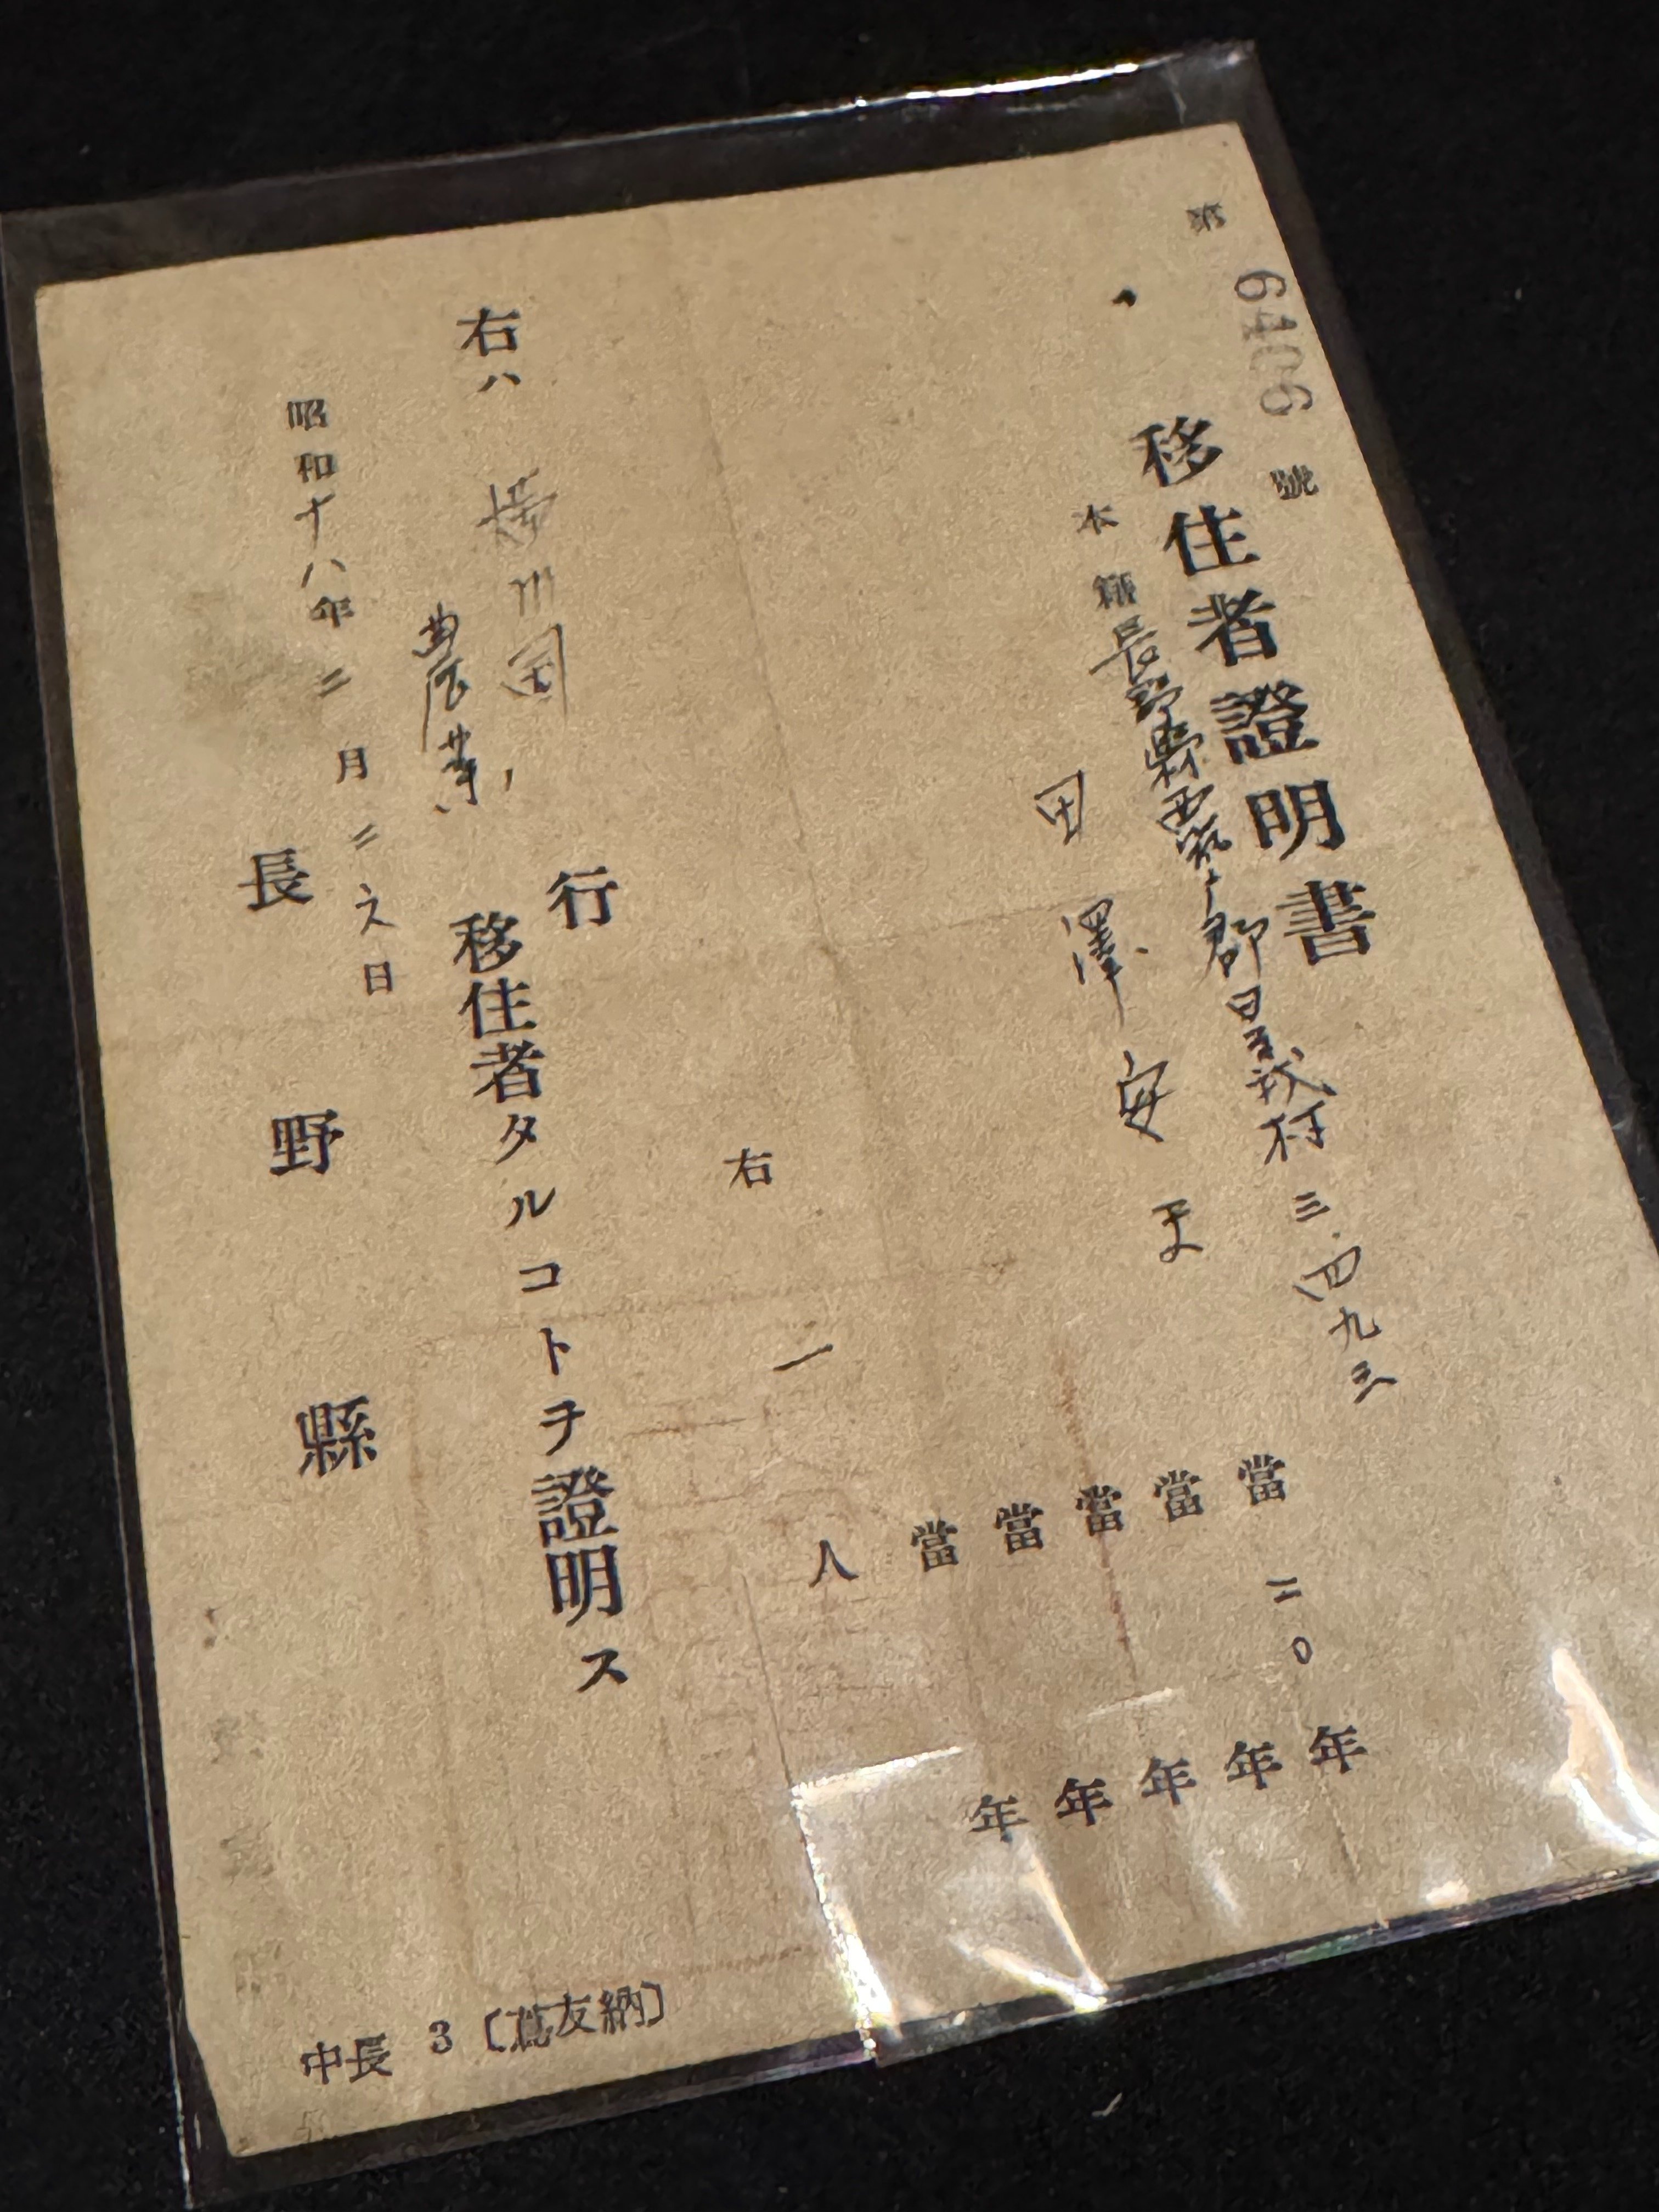 第6406號
移住者證明書
本籍長野縣西筑摩郡日義村三、四九三
田澤安
當二〇年
當年
當年
當年
當年
右一人
右ハ川開行
農業移住者タルコトヲ證明ス
昭和十八年二月二日
長野縣
中長 3 〔友納〕